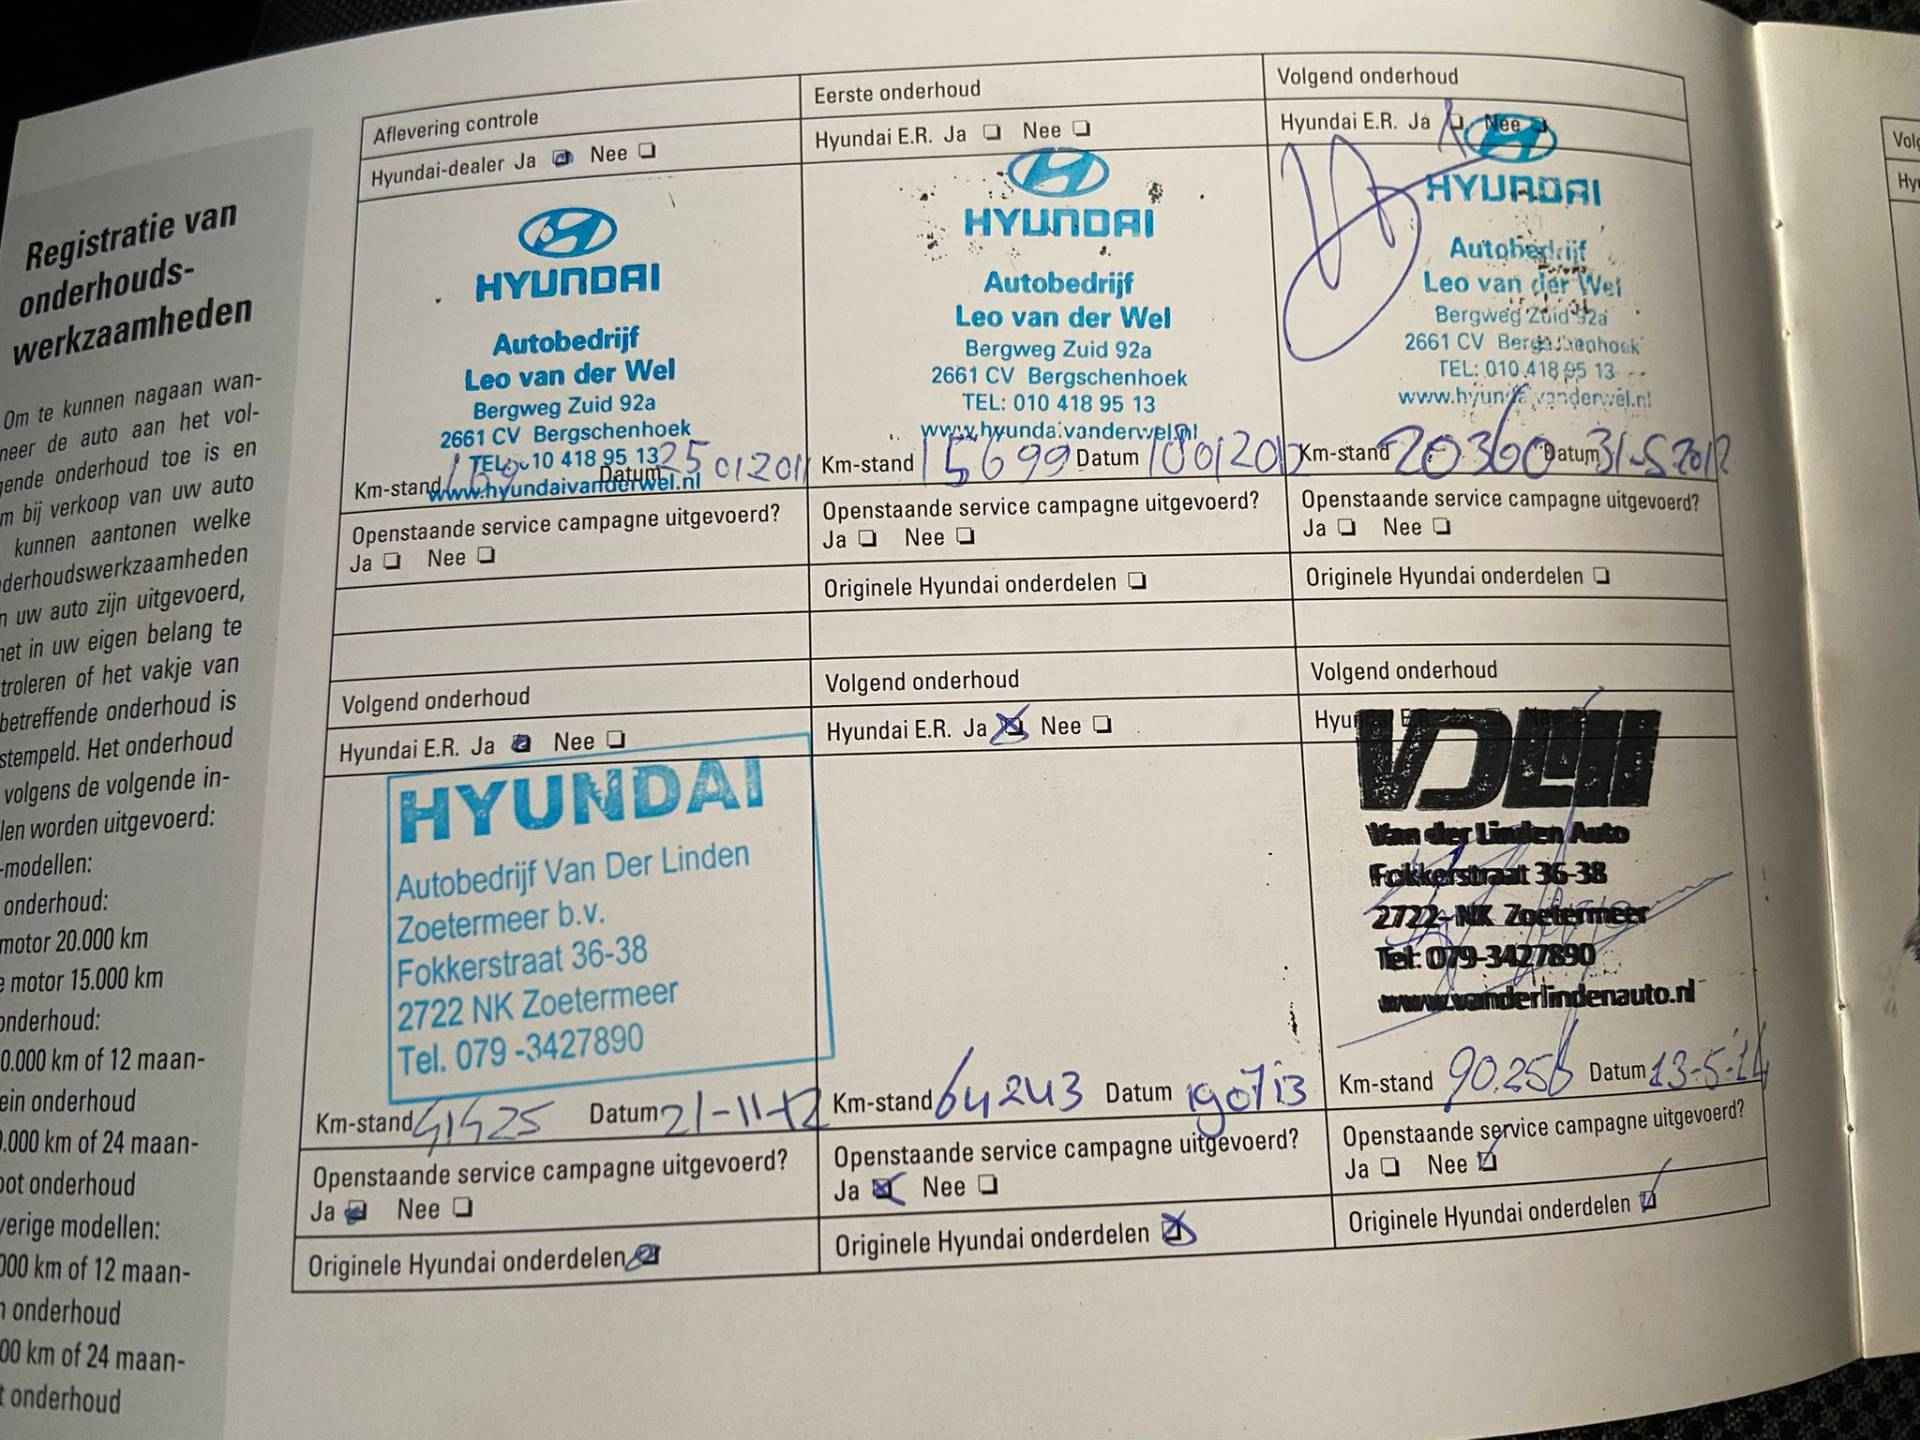 Registratie van
onderhouds-
werkzaamheden
Om te kunnen nagaan wan-
neer de auto aan het vol-
gende onderhoud toe is en
m bij verkoop van uw auto
kunnen aantonen welke
derhoudswerkzaamheden
n uw auto zijn uitgevoerd,
het in uw eigen belang te
troleren of het vakje van
betreffende onderhoud is
stempeld. Het onderhoud
volgens de volgende in-
len worden uitgevoerd:
-modellen:
onderhoud:
motor 20.000 km
e motor 15.000 km
onderhoud:
0.000 km of 12 maan-
ein onderhoud
0.000 km of 24 maan-
oot onderhoud
verige modellen:
000 km of 12 maan-
n onderhoud
00 km of 24 maan-
t onderhoud
Aflevering controle
Hyundai-dealer Ja Nee
HYUNDAI
Autobedrijf
Leo van der Wel
Bergweg Zuid 92a
2661 CV Bergschenhoek
TEL: 010 418 95 13
www.hyundaivanderwel.nl
Km-stand Datum 25012011
Openstaande service campagne uitgevoerd?
Ja Nee
Eerste onderhoud
Hyundai E.R. Ja Nee
HYUNDAI
Autobedrijf
Leo van der Wel
Bergweg Zuid 92a
2661 CV Bergschenhoek
TEL: 010 418 95 13
www.hyundaivanderwel.nl
Km-stand 15699 Datum
Openstaande service campagne uitgevoerd?
Ja Nee
Originele Hyundai onderdelen
Volgend onderhoud
Hyundai E.R. Ja Nee
HYUNDAI
Autobedrijf
Leo van der Wel
Bergweg Zuid 92a
2661 CV Bergschenhoek
TEL: 010 418 95 13
www.hyundaivanderwel.nl
Km-stand 20360 Datum 31-5 2012
Openstaande service campagne uitgevoerd?
Ja Nee
Originele Hyundai onderdelen
Volgend onderhoud
Hyundai E.R. Ja Nee
HYUNDAI
Autobedrijf Van Der Linden
Zoetermeer b.v.
Fokkerstraat 36-38
2722 NK Zoetermeer
Tel. 079 -3427890
Km-stand 41425 Datum 21-11-12
Openstaande service campagne uitgevoerd?
Ja Nee
Originele Hyundai onderdelen
Volgend onderhoud
Hyundai E.R. Ja Nee
Km-stand 64243 Datum 190713
Openstaande service campagne uitgevoerd?
Ja Nee
Originele Hyundai onderdelen
Volgend onderhoud
Van der Linden Auto
Fokkerstraat 36-38
2722- NK Zoetermeer
Tel: 079-3427890
www.vanderlindenauto.nl
Km-stand 90.256 Datum 13-5-14
Openstaande service campagne uitgevoerd?
Ja Nee
Originele Hyundai onderdelen